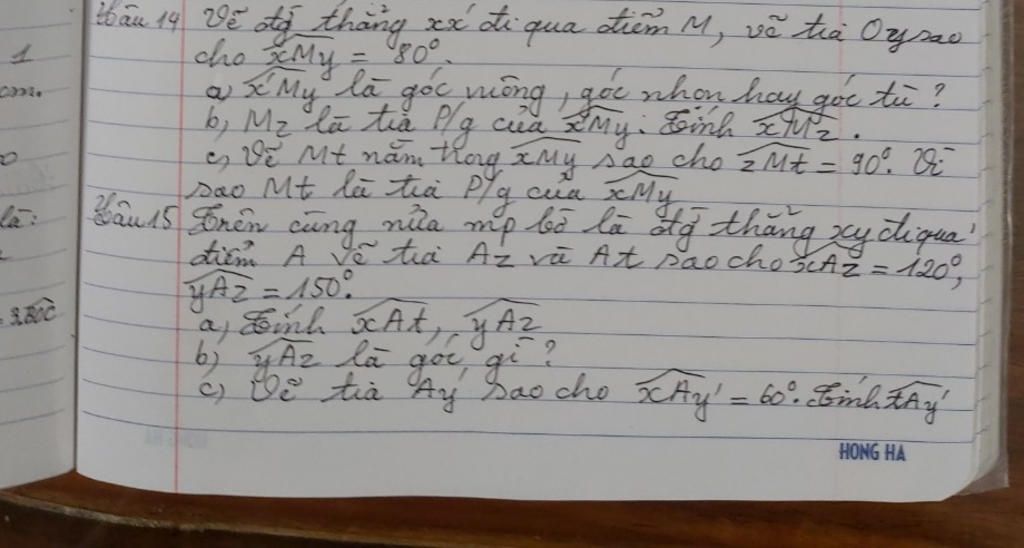 1
cm.
là:
= 3.BOC
Câu 14 Vẽ đg thẳng xx' đi qua điểm M, vẽ tia Oy sao
cho xMy = 80°.
a) x'My là góc vuông, góc nhọn hay góc tù?
b, Mz là tia P/g của xMy. Tính xMz.
c, Vẽ Mt nằm trong xMy sao cho zMt = 90°. Vì
sao Mt là tia P/g của xMy
Câu 15 Trên cùng nửa mp bờ là đg thẳng xy đi qua
điểm A vẽ tia Az và At sao cho xAz = 120°,
yAz = 150°.
a, Tính xAt, yAz
b) yAz là góc gì?
c) Vẽ tia Ay' sao cho xAy' = 60°. Tính tAy'
HONG HA